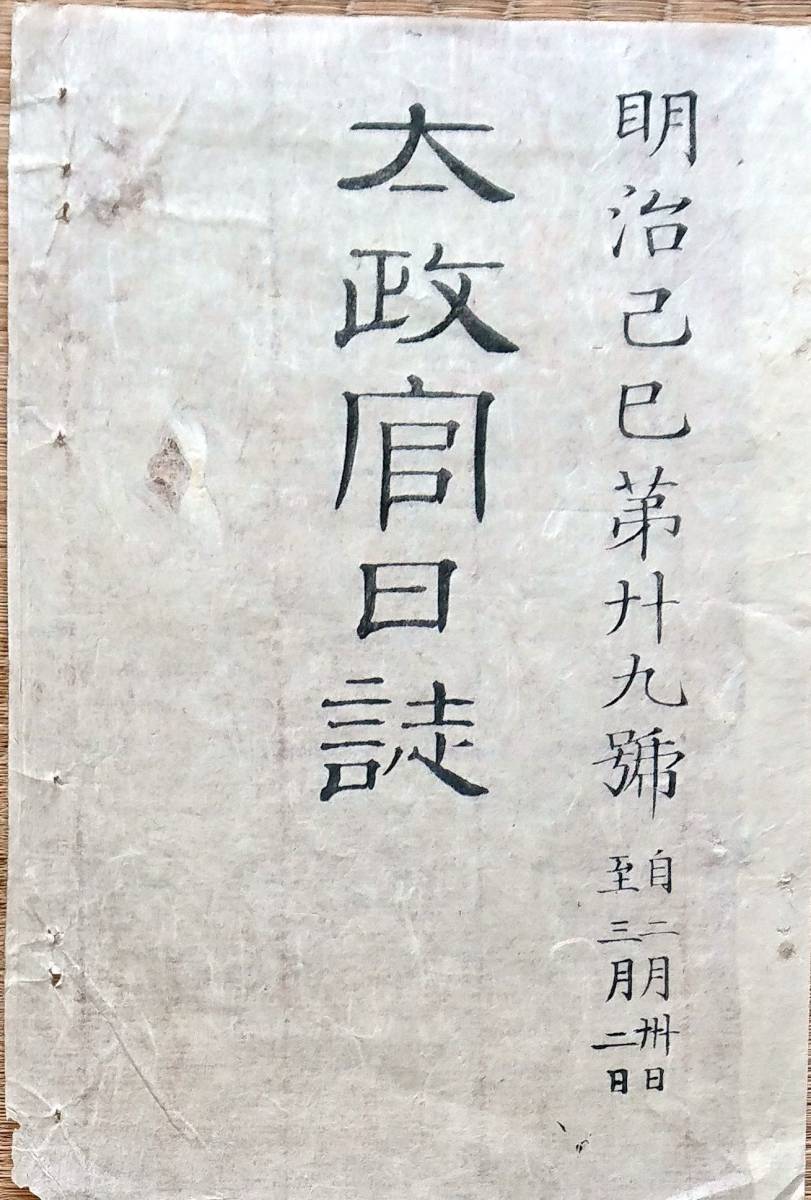 明治己巳第廿九號
自二月卅日
至三月二日
太政官日誌